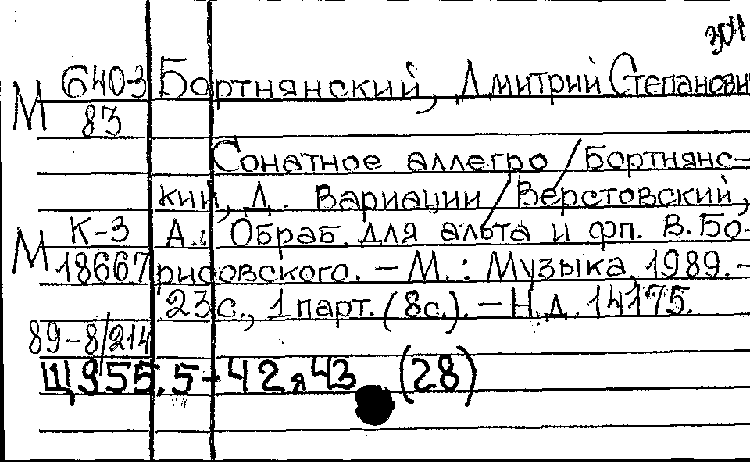 304
М 6403/83 Бортнянский, Дмитрий Степанови
Сонатное аллегро / Бортнянс-
кий, Д. Вариации / Верстовский,
М К-3 А.: Обраб. для альта и фп. В. Бо-
18667 рисовского. – М.: Музыка, 1989. –
23 с., 1 парт. (8с.). – Н.д. 14175.
89-8/214
Щ955.5-42я43 (28)